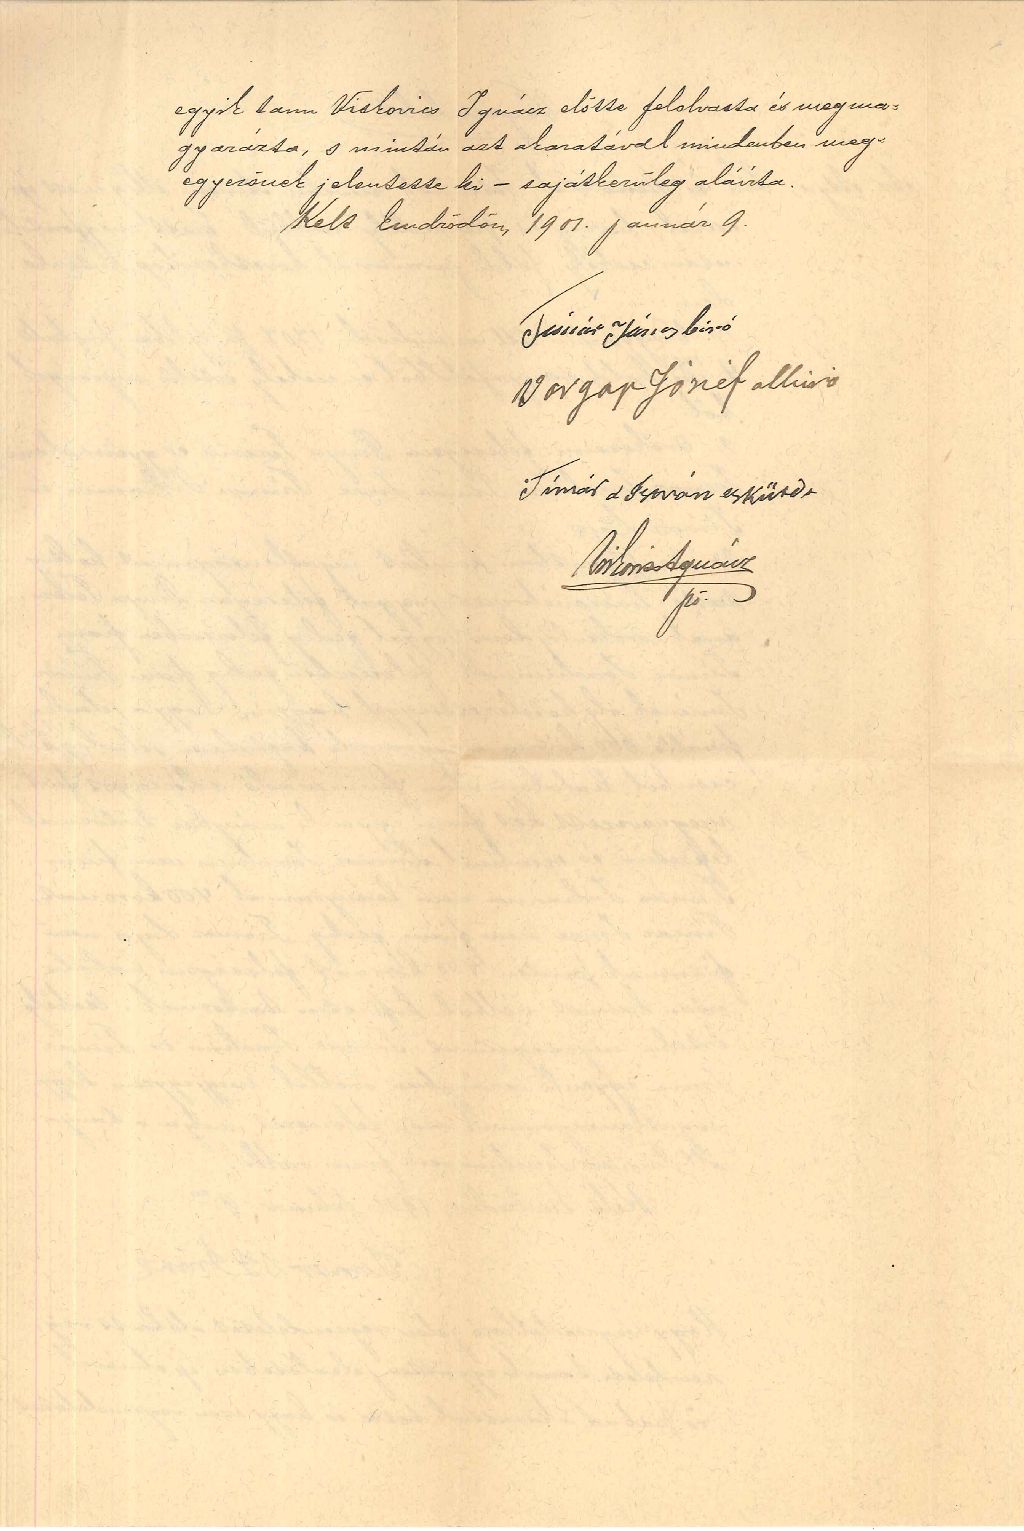 egyik tanu Viskovics Ignácz előtte felolvasta és megma=
gyarázta, s miután azt akaratával mindenben meg=
egyezőnek jelentette ki – sajátkezüleg aláirta.
Kelt Endrődön, 1901. január 9.
Timár János biró
József albiró
Timár d István esküdt
Viskovics Ignácz